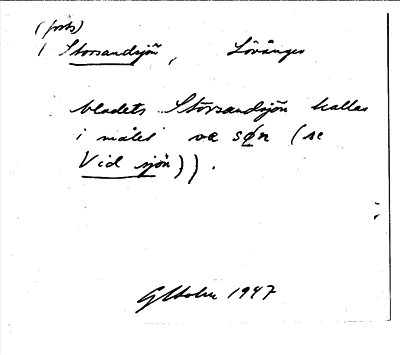 (forts)
( Storsandsjön, Lövånger
bladets Storsandsjön kallas
i målet væ søn (se
Vid sjön)).
G Holm 1947